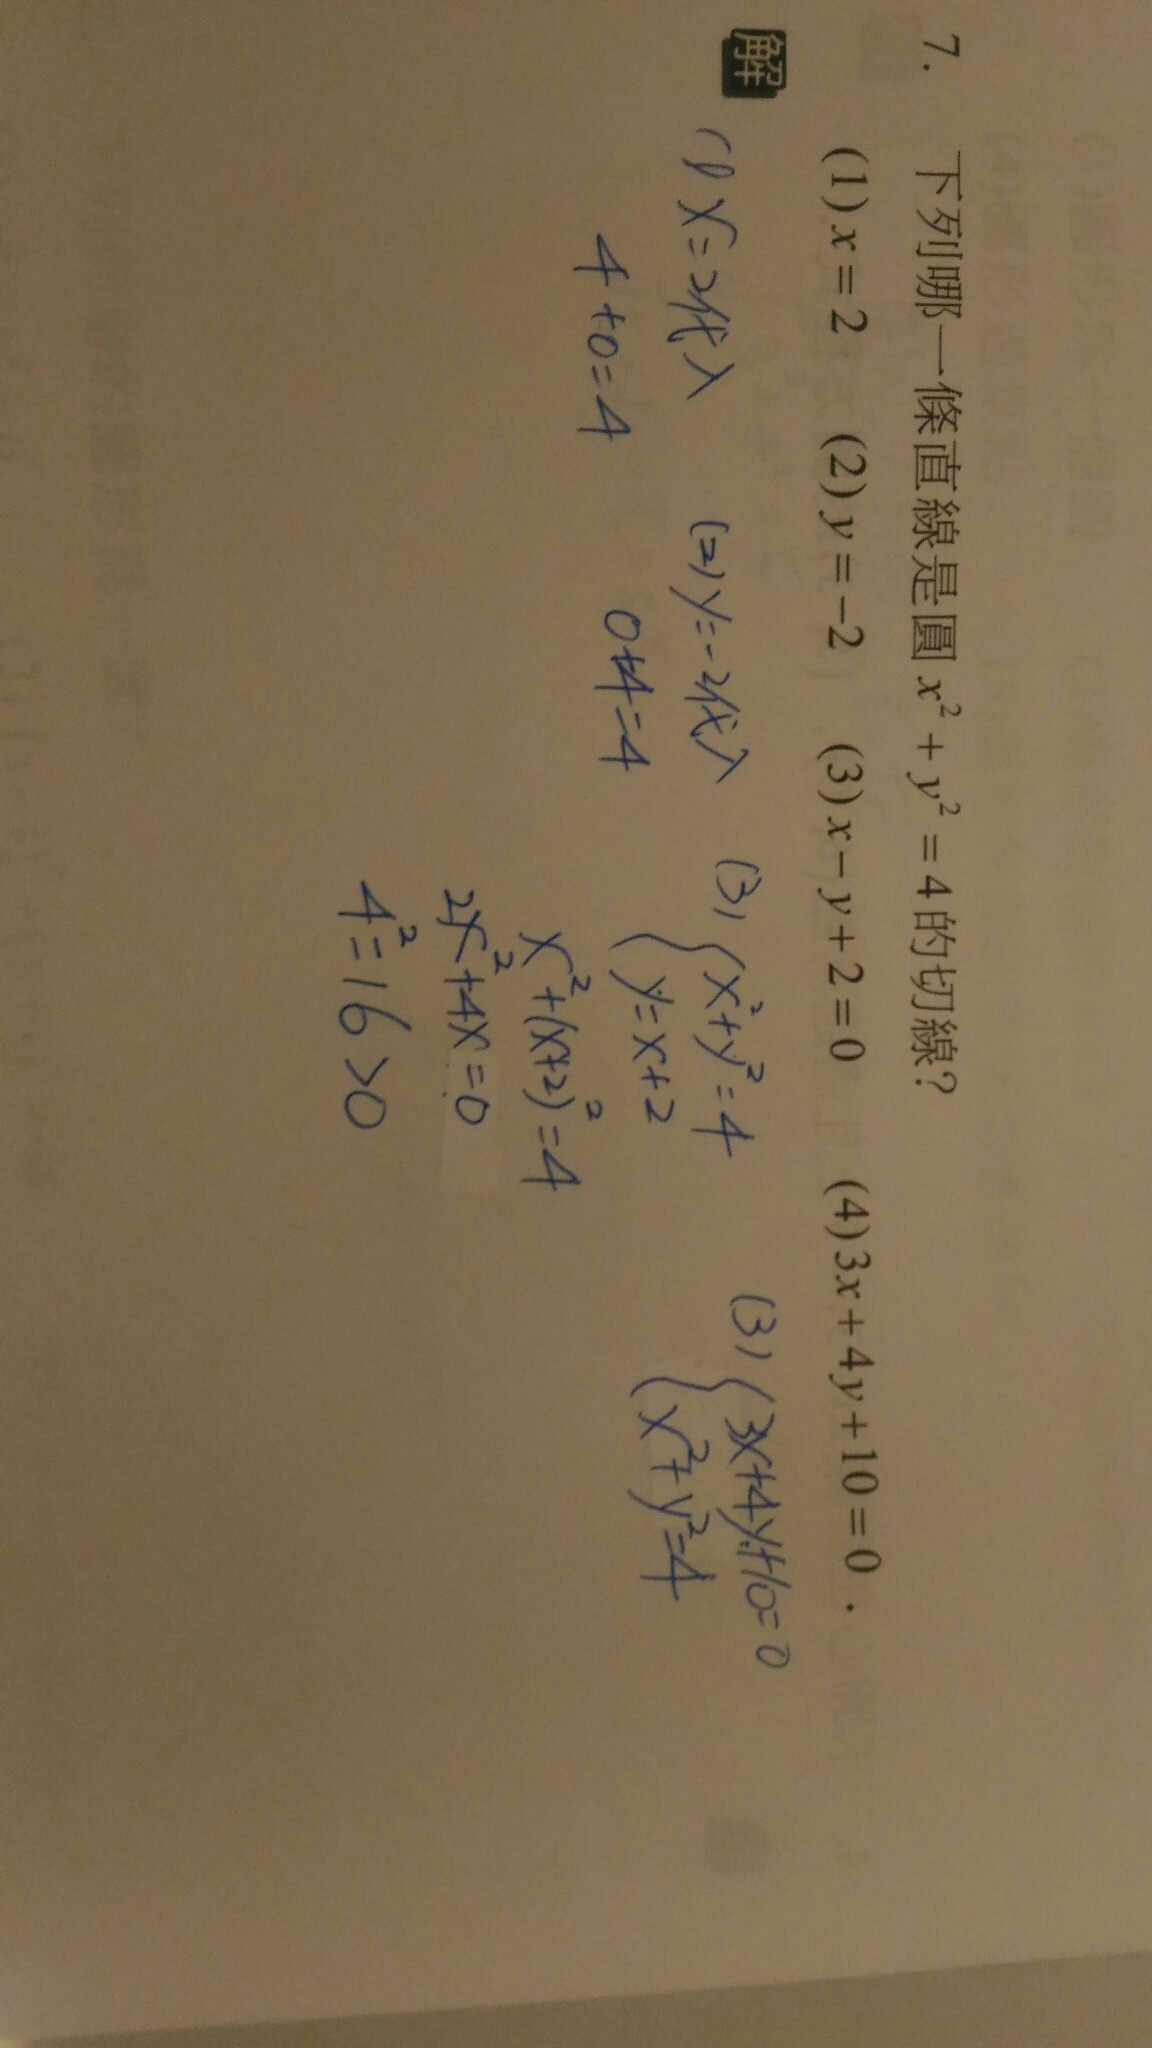 7. 下列哪一條直線是圓 x² + y² = 4 的切線？
(1) x = 2 (2) y = -2 (3) x - y + 2 = 0 (4) 3x + 4y + 10 = 0 .
解
(1) x = 2代入
4 + 0 = 4
(2) y = -2代入
0+4 = 4
(3) { x² + y² = 4
y = x + 2
x² + (x+2)² = 4
2x² + 4x = 0
4² = 16 > 0
(3) { 3x+4y+10 = 0
x² + y² = 4